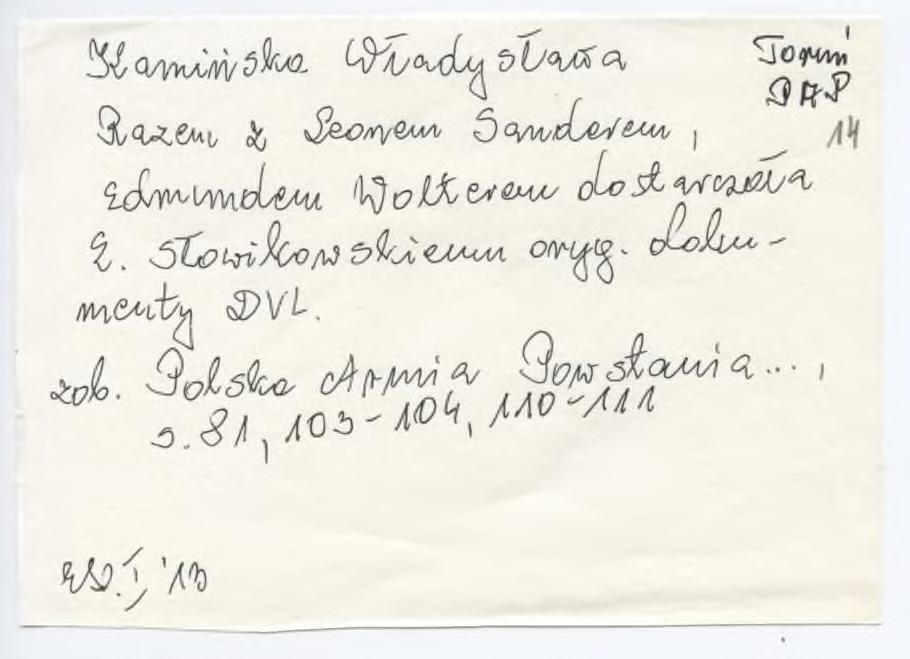 Kamińska Władysława
Toruń
PAP
14
Razem z Leonem Sanderem,
Edmundem Wolterem dostarczała
E. Słowikowskiemu oryg. doku-
menty DVL.
zob. Polska Armia Powstania...,
s. 81, 103-104, 110-111
I, '13